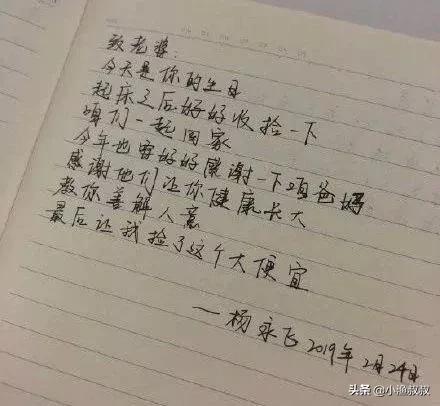 致老婆:
今天是你的生日
起床之后好好收捡一下
咱们一起回家
今年也要好好感谢一下咱爸妈
感谢他们让你健康长大
教你善解人意
最后让我捡了这个大便宜
——杨永飞 2019年2月24日
头条 @小渔叔叔